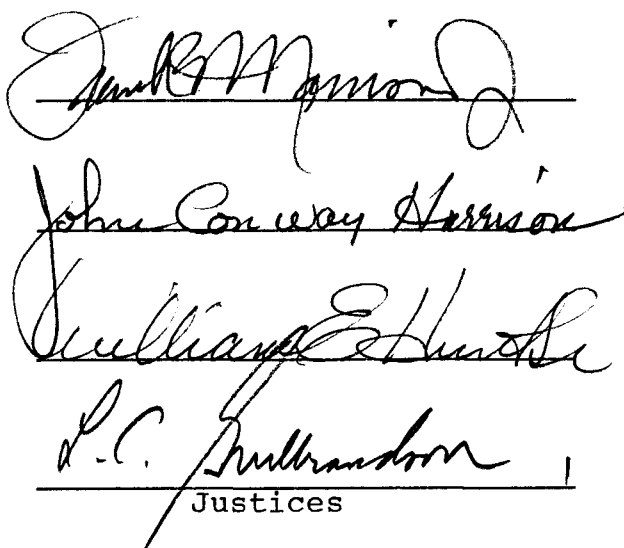 Frank B Morrison Jr
John Conway Harrison
William E Hunt Sr
L.C. Gulbrandson
Justices